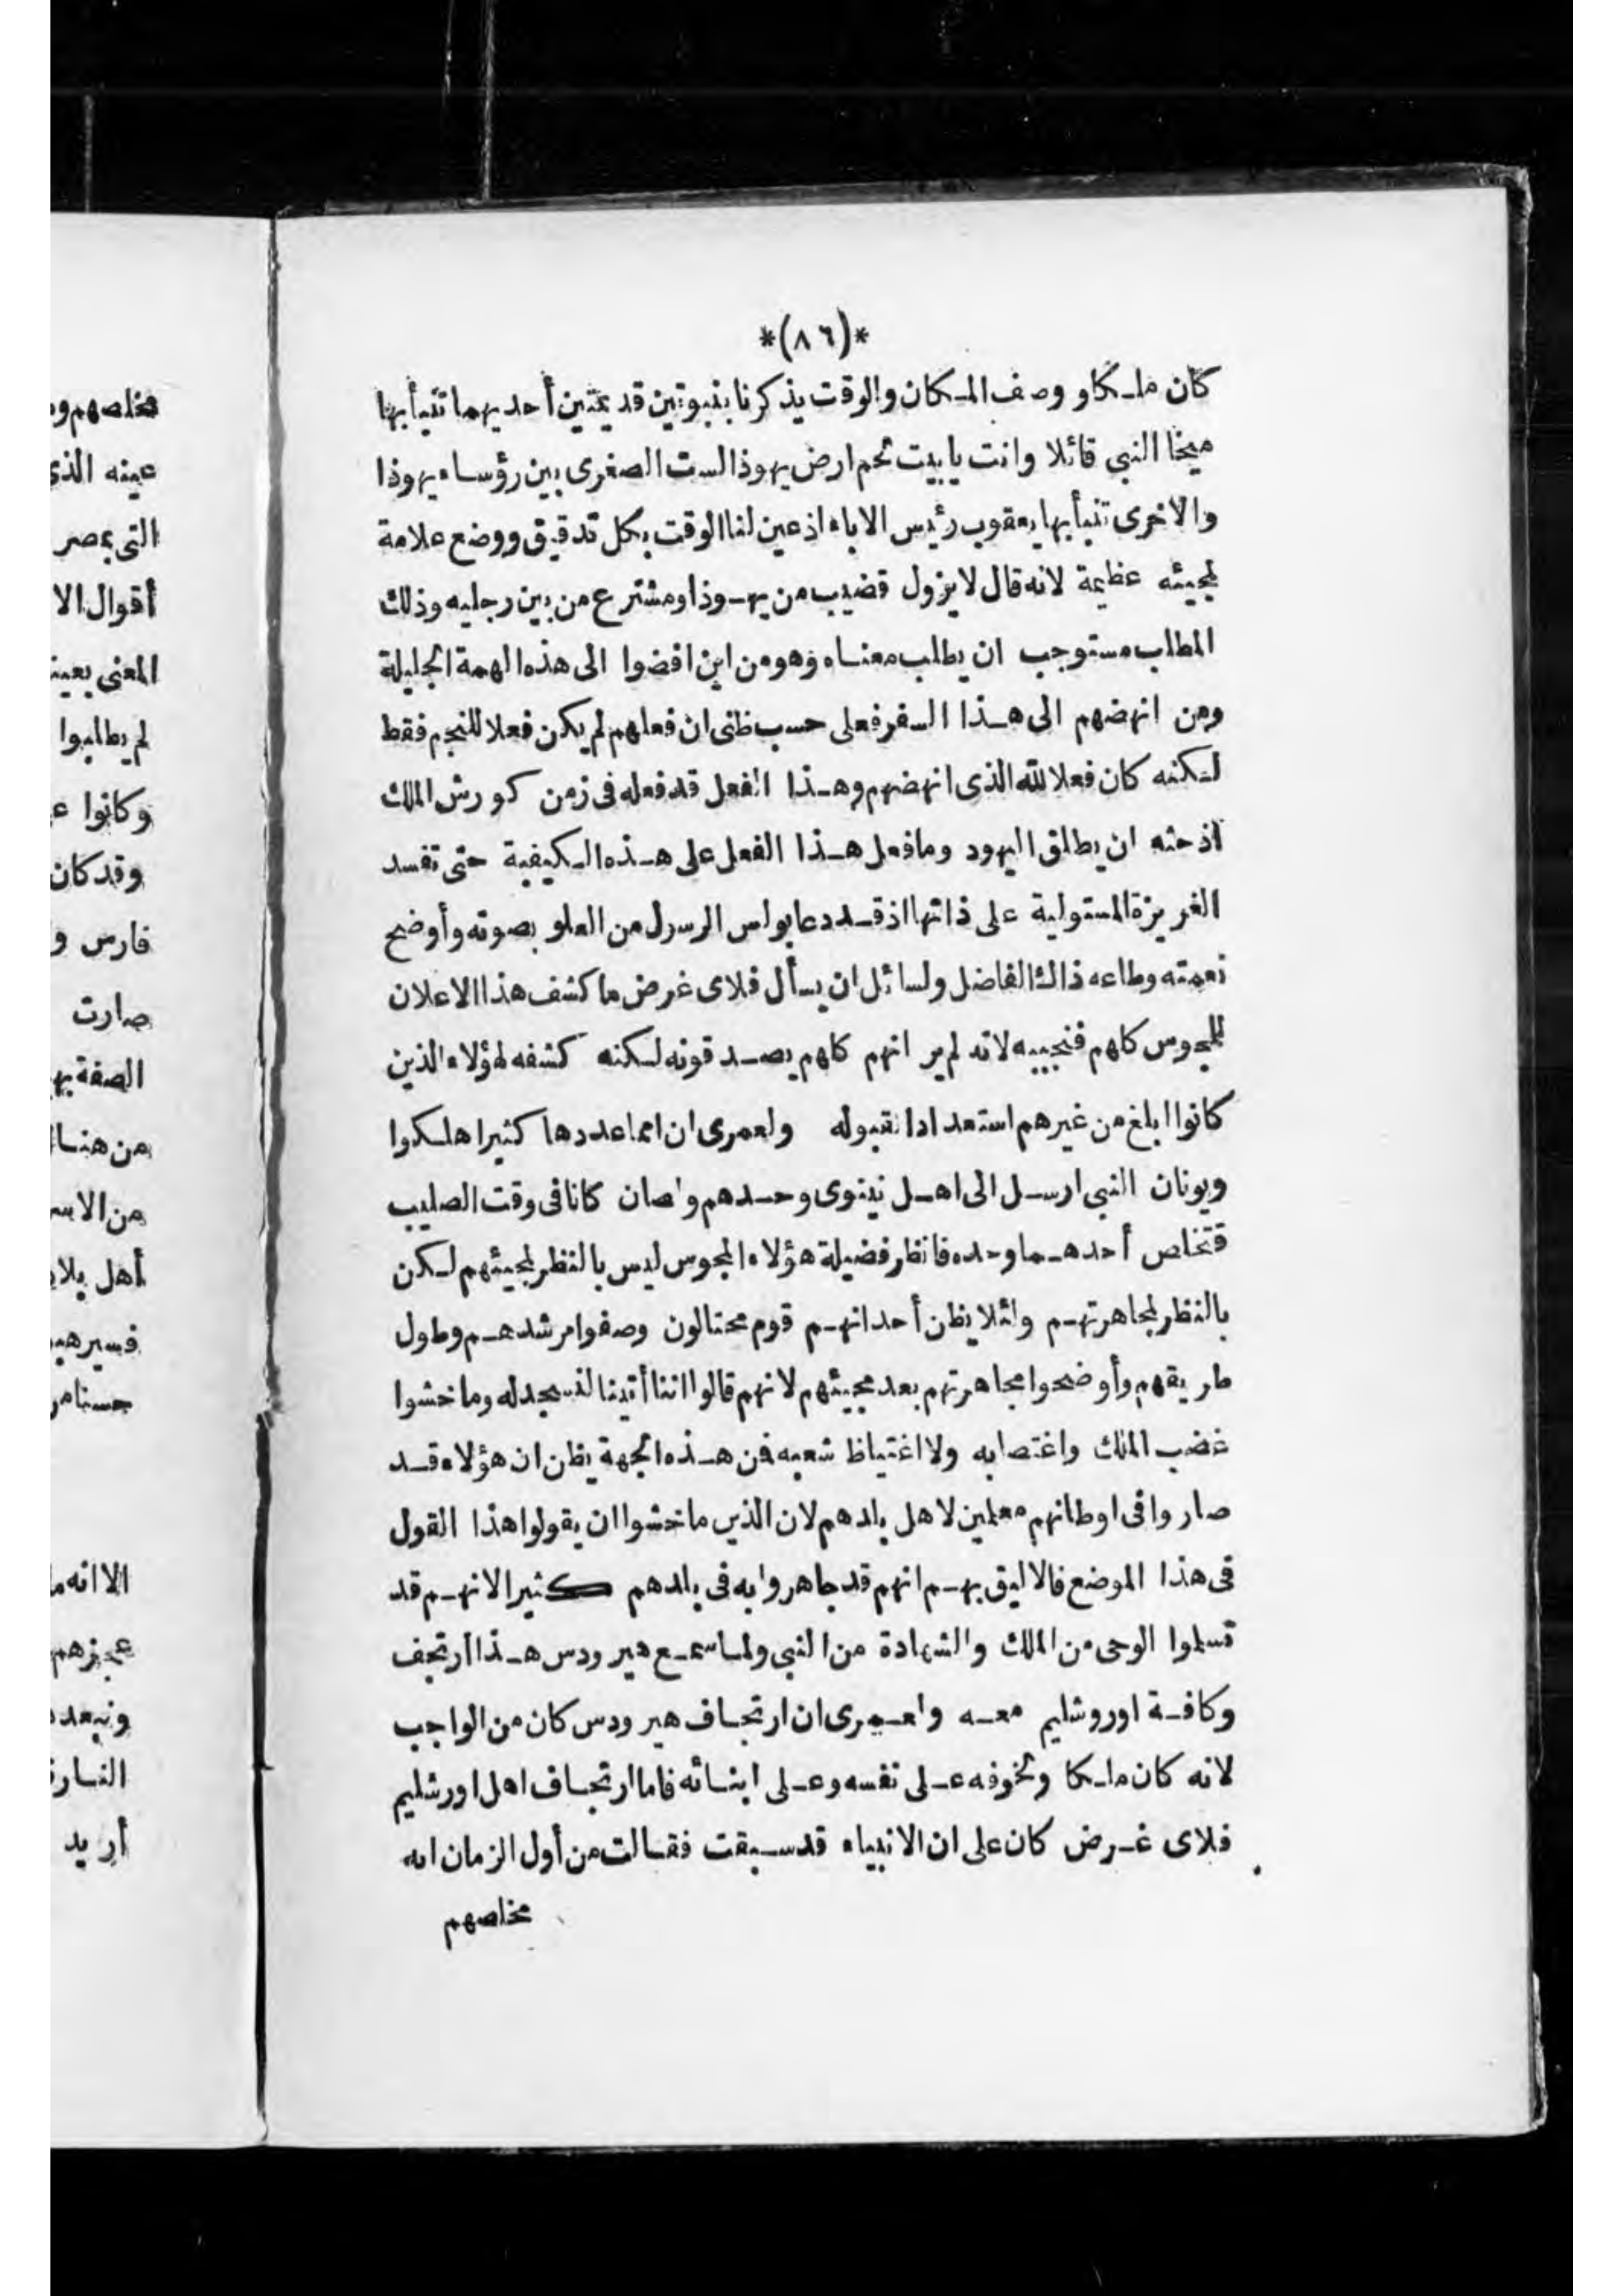 *(٨٦)*
كان ملكا ووصف المكان والوقت يذكرنا بنبوتين قديمتين أحديهما تنبأ بها
ميخا النبي قائلا وانت يا بيت لحم ارض يهوذا لست الصغرى بين رؤساء يهوذا
والاخرى تنبأ بها يعقوب رئيس الاباء اذ عين لنا الوقت بكل تدقيق ووضع علامة
لمجيئه عظيمة لانه قال لا يزول قضيب من يهوذا ومشترع من بين رجليه وذلك
المطلب مستوجب ان يطلب معناه وهو من اين افضوا الى هذه الهمة الجليلة
ومن انهضهم الى هذا السفر فعلى حسب ظنى ان فعلهم لم يكن فعلا للنجم فقط
لكنه كان فعلا لله الذى انهضهم وهذا الفعل قد فعله فى زمن كورش الملك
اذ حثه ان يطلق اليهود وما فعل هذا الفعل على هذه الكيفية حتى تفسد
الغريزة المستولية على ذاتها اذ قد دعا بولس الرسول من العلو بصوته وأوضح
نعمته وطاعه ذاك الفاضل ولسائل ان يسأل فلاى غرض ما كشف هذا الاعلان
للمجوس كلهم فنجيبه لانه لم ير انهم كلهم يصدقونه لكنه كشفه لهؤلاء الذين
كانوا ابلغ من غيرهم استعدادا لقبوله ولعمرى ان امما عددها كثيرا هلكوا
ويونان النبى ارسل الى اهل نينوى وحدهم ولصان كانا فى وقت الصليب
فتخلص أحدهما وحده فانظر فضيلة هؤلاء المجوس ليس بالنظر لمجيئهم لكن
بالنظر لمجاهرتهم ولئلا يظن أحد انهم قوم محتالون وصفوا مرشدهم وطول
طريقهم وأوضحوا مجاهرتهم بعد مجيئهم لانهم قالوا اننا أتينا لنسجد له وما خشوا
غضب الملك واغتصابه ولا اغتياظ شعبه فمن هذه الجهة يظن ان هؤلاء قد
صاروا فى اوطانهم معلمين لاهل بلدهم لان الذين ما خشوا ان يقولوا هذا القول
فى هذا الموضع فالاليق بهم انهم قد جاهروا به فى بلدهم كثيرا لانهم قد
تسلموا الوحى من الملك والشهادة من النبى ولما سمع هيرودس هذا ارتجف
وكافة اوروشليم معه ولعمرى ان ارتجاف هيرودس كان من الواجب
لانه كان ملكا وتخوفه على نفسه وعلى ابنائه فاما ارتجاف اهل اورشليم
فلاى غرض كان على ان الانبياء قد سبقت فقالت من أول الزمان انه
مخلصهم
مخلصهم
عينه الذى
التى بمصر
أقوال الا
المعنى بعينه
لم يطلبوا
وكانوا
وقد كان
فارس و
صارت
الصفة
من هنا
أهل بلا
الا انه
عجزهم
أريد